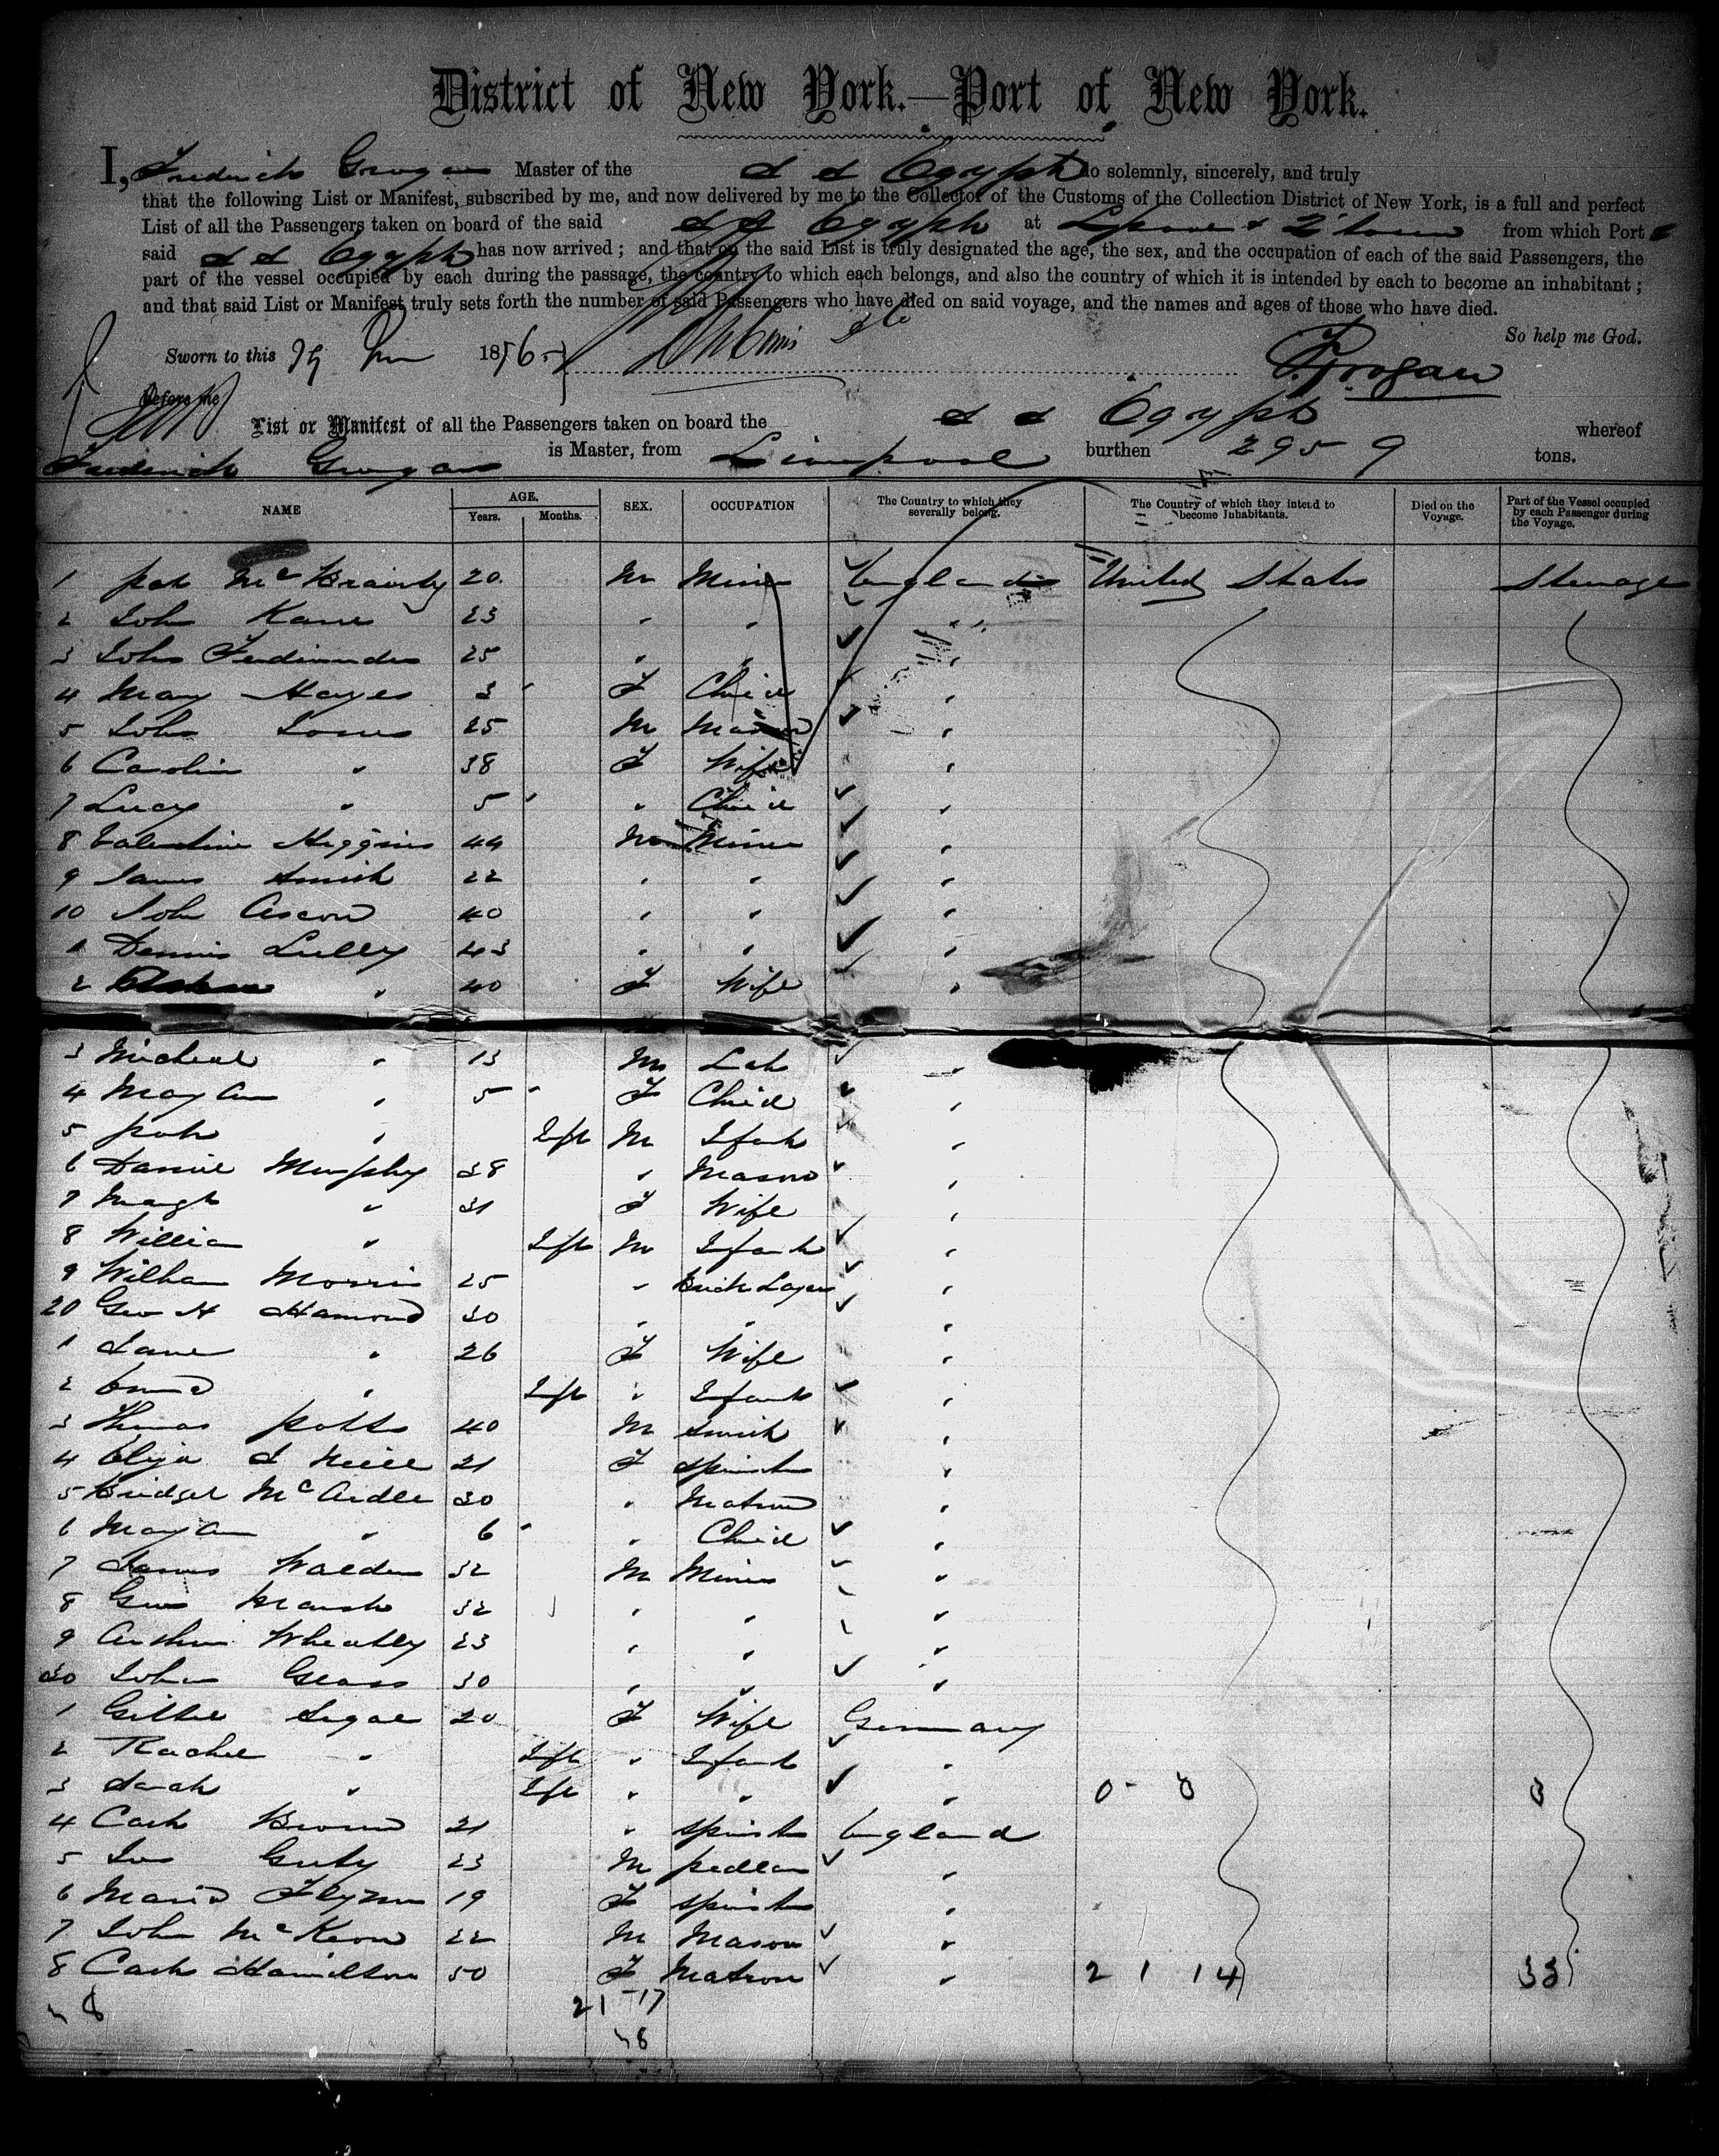 District of New York.—Port of New York.
I, Frederick Grogan Master of the S S Egypt do solemnly, sincerely, and truly
that the following List or Manifest, subscribed by me, and now delivered by me to the Collector of the Customs of the Collection District of New York, is a full and perfect
List of all the Passengers taken on board of the said S S Egypt at Lpool & Q'town from which Port
said S S Egypt has now arrived; and that on the said List is truly designated the age, the sex, and the occupation of each of the said Passengers, the
part of the vessel occupied by each during the passage, the country to which each belongs, and also the country of which it is intended by each to become an inhabitant;
and that said List or Manifest truly sets forth the number of said Passengers who have died on said voyage, and the names and ages of those who have died.
So help me God.
Sworn to this 18 F. Grogan
Before me
List or Manifest of all the Passengers taken on board the S S Egypt whereof
Frederick Grogan is Master, from Liverpool burthen 2959 tons.
NAME AGE. Years. Months. SEX. OCCUPATION The Country to which they severally belong. The Country of which they intend to become Inhabitants. Died on the Voyage. Part of the Vessel occupied by each Passenger during the Voyage.
1 Pat 20 M Miner England United States Steerage
2 John Kane 23 " " "
3 John 25 " " "
4 Mary Hayes 3 F Child "
5 John Jones 25 M Mason "
6 Carolin " 38 F Wife "
7 Lucy " 5 " Child "
8 Valentine Higgins 44 M Miner "
9 James Smith 22 " " "
10 John 40 " " "
1 Dennis Lully 43 " " "
2 " 40 F Wife "
3 Micheal " 13 M Lab "
4 Mary An " 5 F Child "
5 Pat " Inft M Infant "
6 Daniel Murphy 38 " Mason "
7 Magt " 31 F Wife "
8 William " Inft M Infant "
9 William Morris 25 " Brick Layer "
20 Geo H Hamond 30 " " "
1 Jane " 26 F Wife "
2 " Inft " Infant "
3 Thomas Potts 40 M Smith "
4 Eliza 21 F Spinster "
5 Bridget McArdle 30 " Matron "
6 Mary An " 6 " Child "
7 James Walden 32 M Miner "
8 Geo Marsh 32 " " "
9 Arthur Wheatley 23 " " "
30 John Glass 30 " " "
1 Gittel Segal 20 F Wife Germany
2 Rachel " Inft " Infant "
3 Sarah " Inft " " " 0 - 3 3
4 Cath Brown 21 " Spinster England
5 23 M Pedlar "
6 Maria Flynn 19 F Spinster "
7 John McKeon 22 M Mason "
8 Cath Hamilton 50 F Matron " 21 14 33
21 17